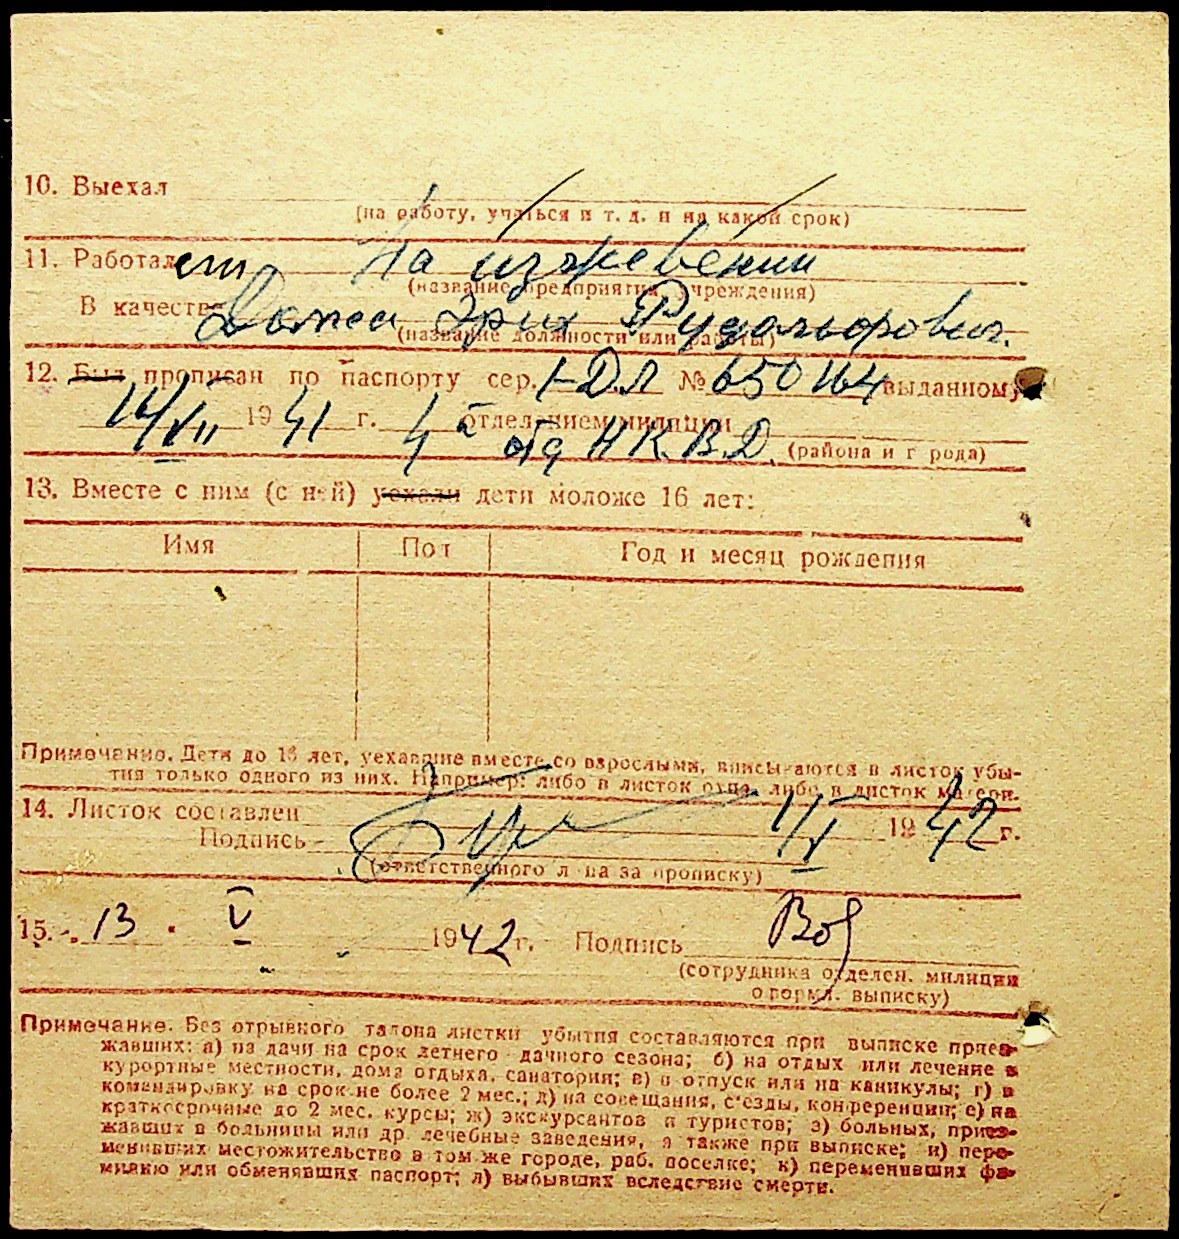 10. Выехал
(на работу, учиться и т. д. и на какой срок)
11. Работал на иждевении
(название предприятия, учреждения)
В качестве Эрих Рудольфович.
(название должности или работы)
12. Был прописан по паспорту сер. I-ДЛ № 650164 выданному
14/VII 1941 г. 4м отделением милиции
отд Н.К.В.Д. (района и города)
13. Вместе с ним (с ней) уехали дети моложе 16 лет:
Имя Пол Год и месяц рождения
Примечание. Дети до 16 лет, уехавшие вместе со взрослыми, вписываются в листок убы-
тия только одного из них. Например: либо в листок отца, либо в листок матери.
14. Листок составлен 1/V 1942 г.
Подпись
(ответственного лица за прописку)
15. 13. V 1942 г. Подпись
(сотрудника отделен. милиции
оформл. выписку)
Примечание. Без отрывного талона листки убытия составляются при выписке приез-
жавших: а) на дачи на срок летнего дачного сезона; б) на отдых или лечение в
курортные местности, дома отдыха, санатории; в) в отпуск или на каникулы; г) в
командировку на срок не более 2 мес.; д) на совещания, с'езды, конференции; е) на
краткосрочные до 2 мес. курсы; ж) экскурсантов и туристов; з) больных, приез-
жавших в больницы или др. лечебные заведения, а также при выписке; и) пере-
менивших местожительство в том же городе, раб. поселке; к) переменивших фа-
милию или обменявших паспорт; л) выбывших вследствие смерти.